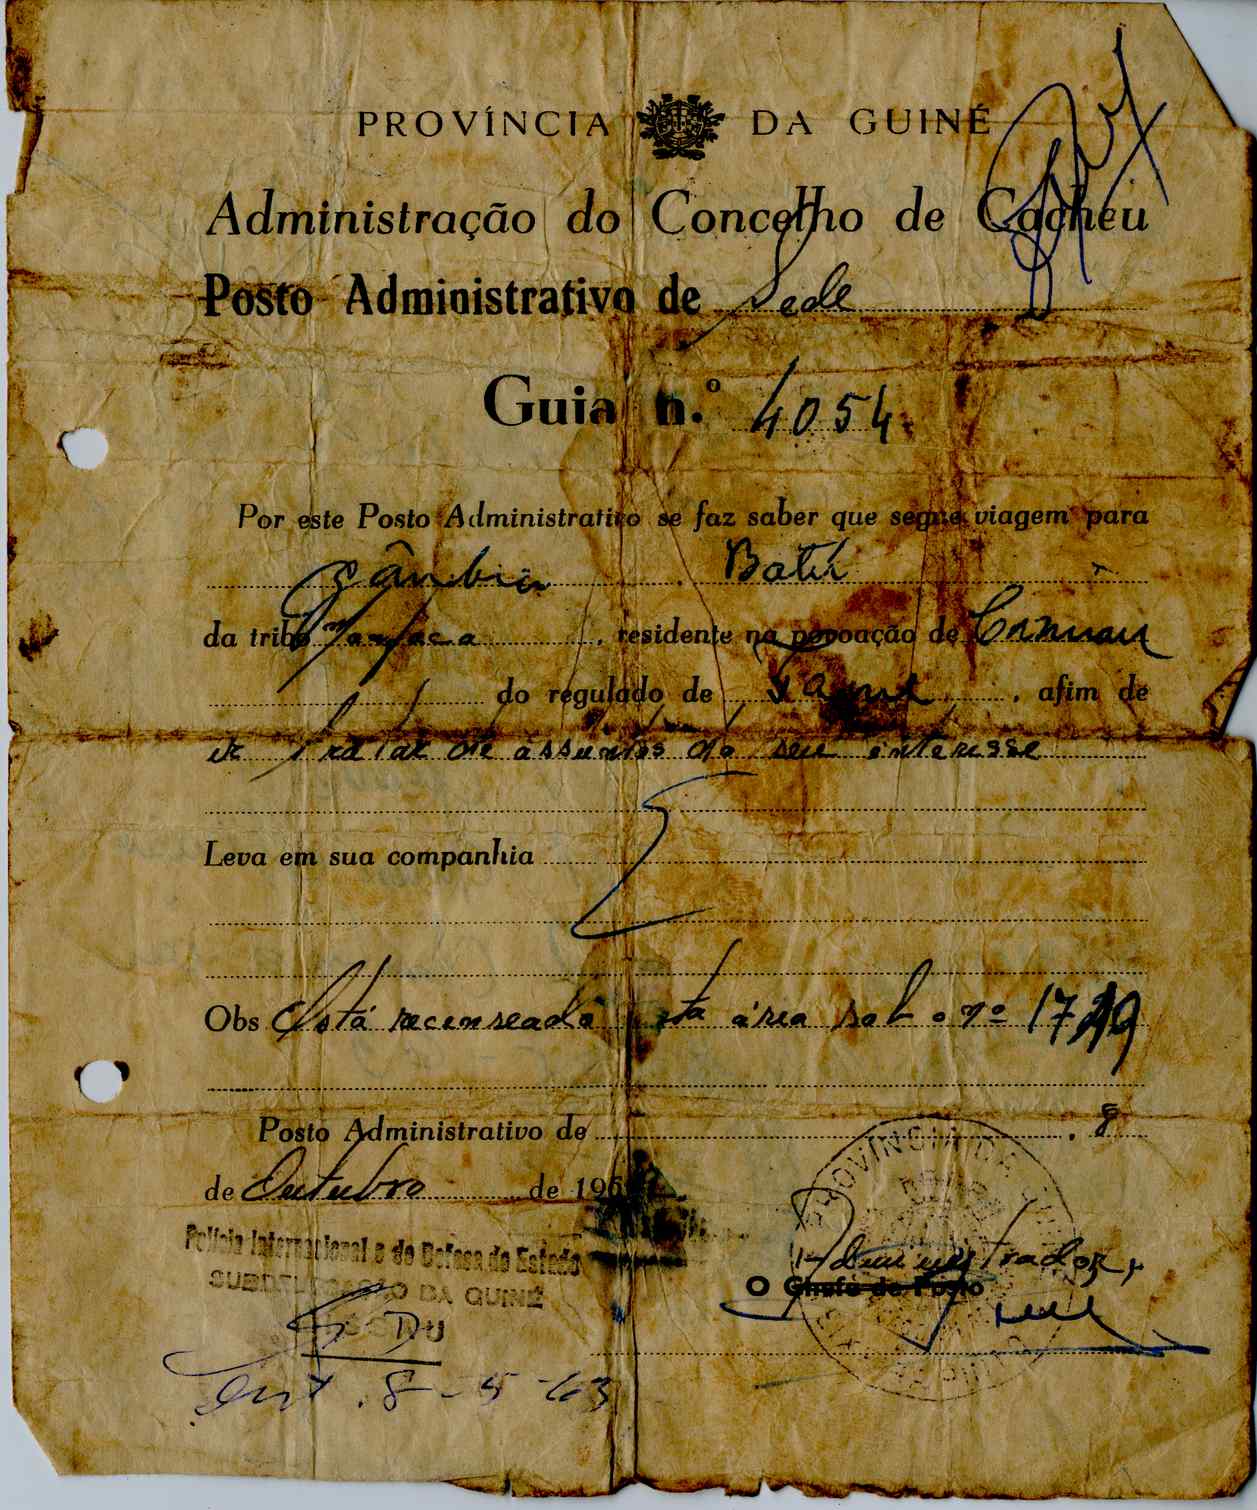 PROVÍNCIA DA GUINÉ
Administração do Concelho de Cacheu
Posto Administrativo de Sede
Guia n.º 4054
Por este Posto Administrativo se faz saber que segue viagem para
Gâmbia, Batú
da tribo Manjaca, residente na povoação de
do regulado de, afim de
ir tratar de assuntos do seu interesse
Leva em sua companhia
Obs Está recenseado nesta área sob o nº
Posto Administrativo de, 8
de Outubro de 196
Polícia Internacional e de Defesa do Estado
SUBDELEGAÇÃO DA GUINÉ
Administrador,
O Chefe do Posto
Ent. 8-5-63